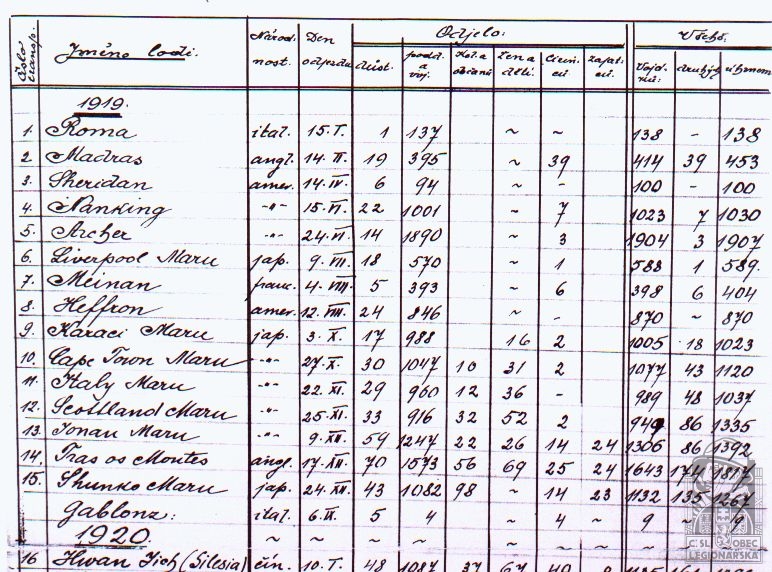 číslo transp. Jméno lodi. Národnost. Den odjezdu Odjelo: Všeho:
důst. podd. a voj. Žen a děti Cizinců zajatců. Vojáků: druhých úhrnem
1919.
1. Roma ital. 15. I. 1 137 ~ ~ 138 - 138
2 Madras angl. 14. II. 19 395 ~ 39 414 39 453
3. Sheridan amer. 14. IV. 6 94 ~ - 100 - 100
4. Nanking -"- 15. VI. 22 1001 ~ 7 1023 7 1030
5. Archer -"- 24. VI. 14 1890 ~ 3 1904 3 1907
6. Liverpool Maru jap. 9. VIII. 18 570 ~ 1 588 1 589.
7. Meinan franc. 4. VIII. 5 393 ~ 6 398 6 404
8. Heffron amer. 12. VIII. 24 846 ~ - 870 ~ 870
9. Karaci Maru jap. 3. X. 17 988 16 2 1005 18 1023
10. Cape Town Maru -"- 27. X. 30 1047 10 31 2 1077 43 1120
11. Italy Maru -"- 22. XI. 29 960 12 36 - 989 48 1037
12. Scottland Maru -"- 25. XI. 33 916 32 52 2 949 86 1335
13. Ionan Maru -"- 9. XII. 59 1247 22 26 14 24 1306 86 1392
14 Tras os Montes angl. 17. XII. 70 1573 56 69 25 24 1643 174 1817
15. Shunko Maru jap. 24. XII. 43 1082 98 ~ 14 23 1132 135 1267
Gablonz: ital. 6. II. 5 4 ~ 4 ~ 9 ~ 9
1920. ~ ~ ~ ~ ~ ~ ~ ~ ~ ~
16 Hwan Jich (Silesia) čín. 10. I. 48 1087 37 67
ČSL OBEC
LEGIONÁŘSKÁ